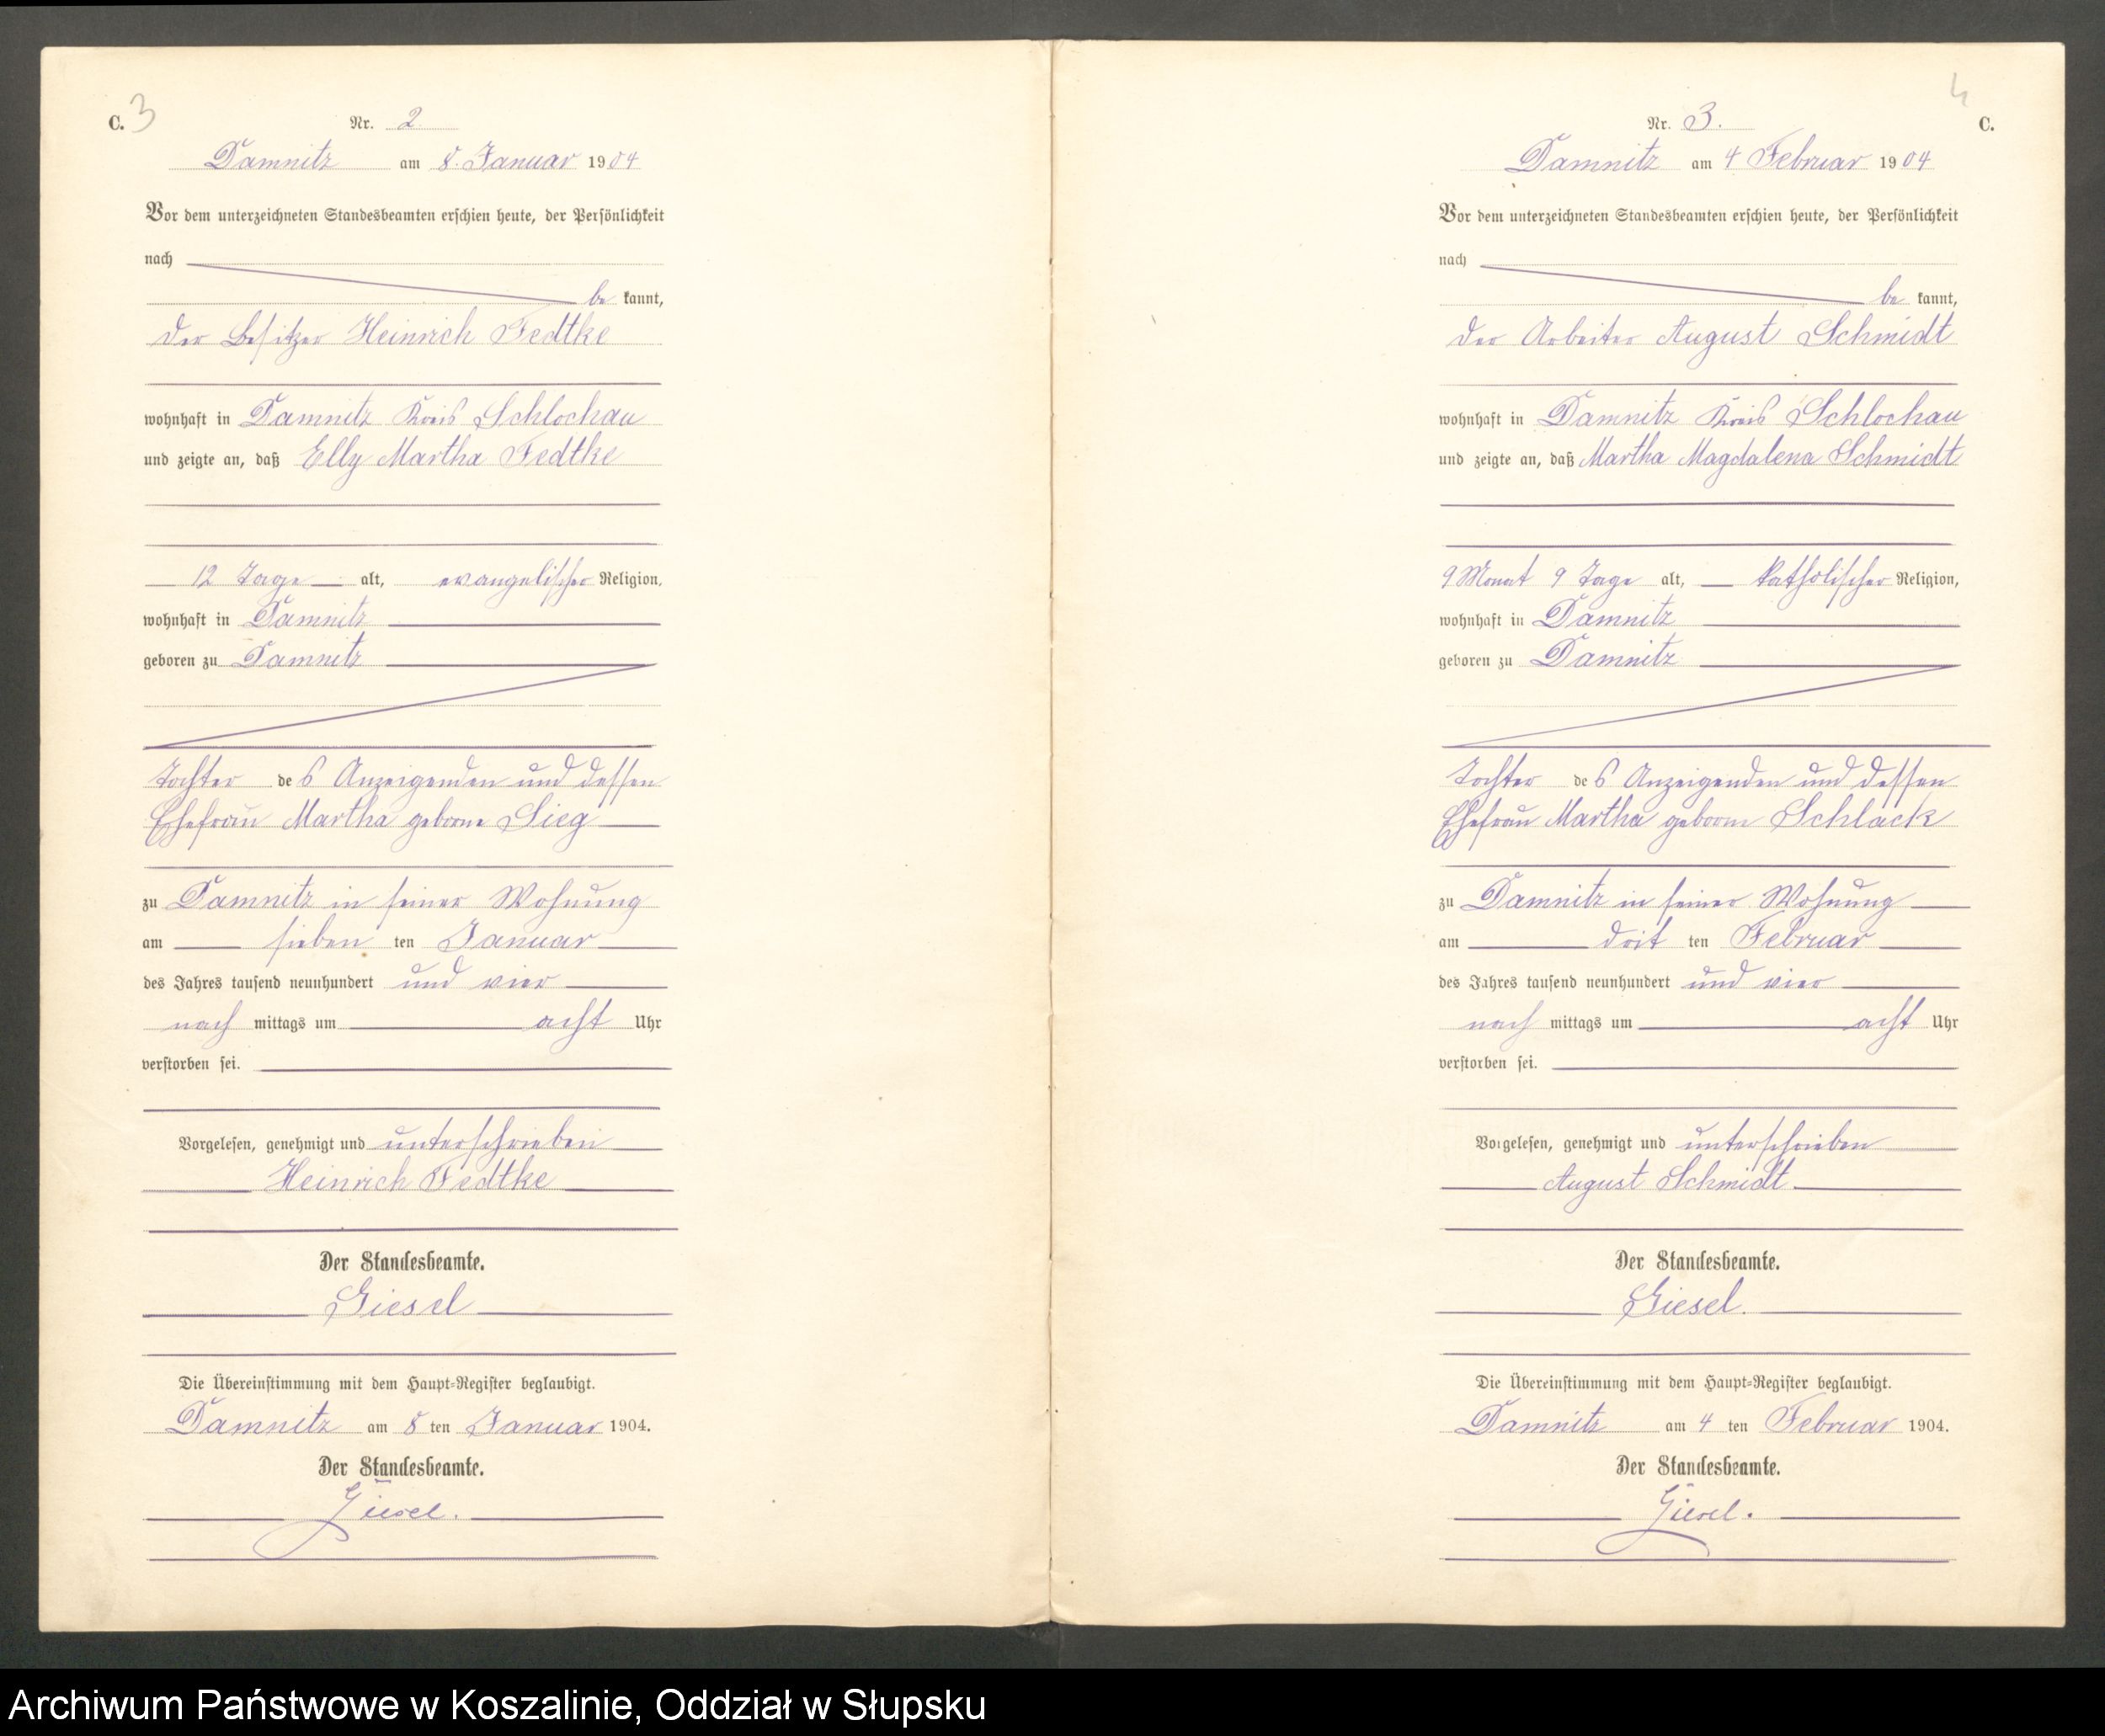 C. 3
Nr. 2
Damnitz am 8. Januar 1904
Vor dem unterzeichneten Standesbeamten erschien heute, der Persönlichkeit
nach
be kannt,
der Besitzer Heinrich Fedtke
wohnhaft in Damnitz Kreis Schlochau
und zeigte an, daß Elly Martha Fedtke
12 Tage alt, evangelischer Religion,
wohnhaft in Damnitz
geboren zu Damnitz
Tochter des Anzeigenden und dessen
Ehefrau Martha geborne Sieg
zu Damnitz in seiner Wohnung
am sieben ten Januar
des Jahres tausend neunhundert und vier
nach mittags um acht Uhr
verstorben sei.
Vorgelesen, genehmigt und unterschrieben
Heinrich Fedtke
Der Standesbeamte.
Giesel
Die Übereinstimmung mit dem Haupt-Register beglaubigt.
Damnitz am 8 ten Januar 1904.
Der Standesbeamte.
Giesel.
4
Nr. 3. C.
Damnitz am 4 Februar 1904
Vor dem unterzeichneten Standesbeamten erschien heute, der Persönlichkeit
nach
be kannt,
der Arbeiter August Schmidt
wohnhaft in Damnitz Kreis Schlochau
und zeigte an, daß Martha Magdalena Schmidt
9 Monat 9 Tage alt, katholischer Religion,
wohnhaft in Damnitz
geboren zu Damnitz
Tochter des Anzeigenden und dessen
Ehefrau Martha geborne Schlack
zu Damnitz in seiner Wohnung
am drit ten Februar
des Jahres tausend neunhundert und vier
nach mittags um acht Uhr
verstorben sei.
Vorgelesen, genehmigt und unterschrieben
August Schmidt.
Der Standesbeamte.
Giesel.
Die Übereinstimmung mit dem Haupt-Register beglaubigt.
Damnitz am 4 ten Februar 1904.
Der Standesbeamte.
Giesel.
Archiwum Państwowe w Koszalinie, Oddział w Słupsku